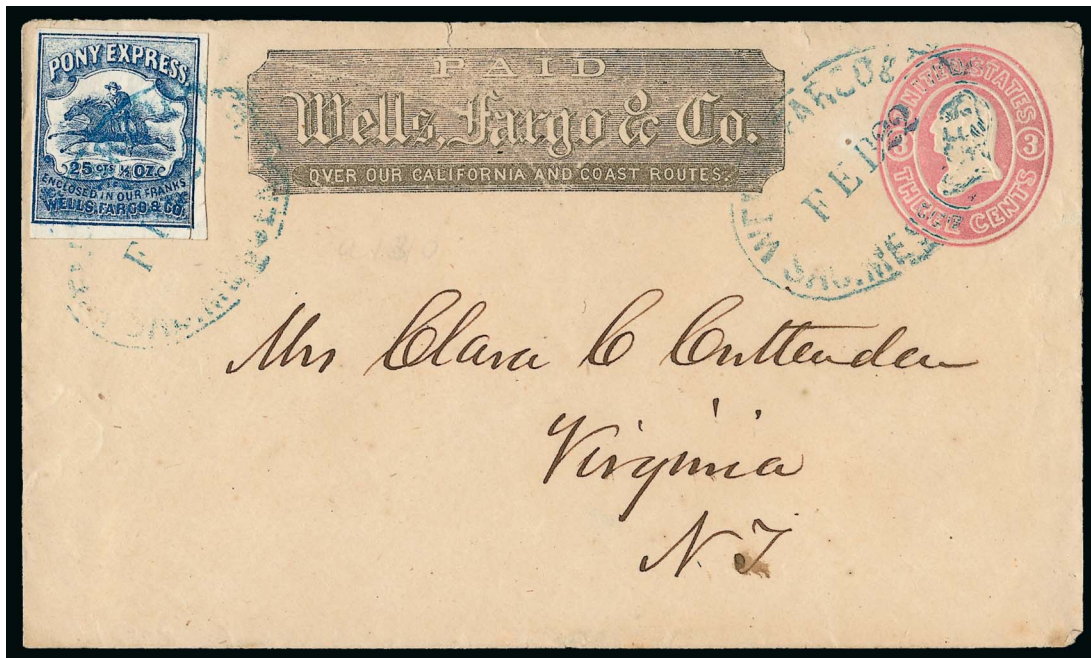 PONY EXPRESS
25 CTS ½ OZ.
ENCLOSED IN OUR FRANKS
WELLS, FARGO & CO.
PAID
Wells, Fargo & Co.
OVER OUR CALIFORNIA AND COAST ROUTES.
FEB 22
UNITED STATES
3 3
THREE CENTS
Mrs Clara C Cuttenden
Virginia
N T